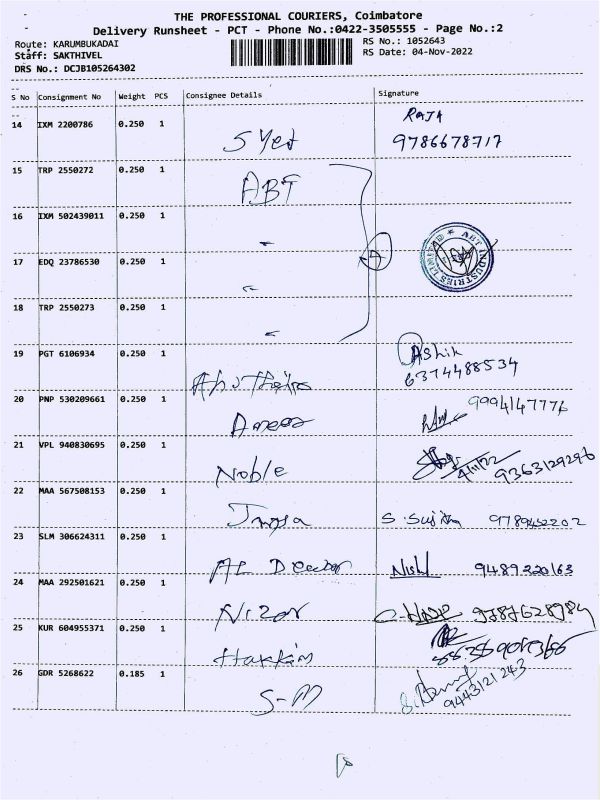 THE PROFESSIONAL COURIERS, Coimbatore
Delivery Runsheet - PCT - Phone No.:0422-3505555 - Page No.:2
Route: KARUMBUKADAI RS No.: 1052643
Staff: SAKTHIVEL RS Date: 04-Nov-2022
DRS No.: DCJB105264302
S No Consignment No Weight PCS Consignee Details Signature
14 IXM 2200786 0.250 1 Syed RAJA
9786678717
15 TRP 2550272 0.250 1 ABT
16 IXM 502439011 0.250 1 "
ABT INDUSTRIES LIMITED
17 EDQ 23786530 0.250 1 " 4
18 TRP 2550273 0.250 1 "
19 PGT 6106934 0.250 1 Ashik
6374488534
20 PNP 530209661 0.250 1 Ameer 9994147776
21 VPL 940830695 0.250 1 Noble 4/11/22 9363129296
22 MAA 567508153 0.250 1 S. Sujith 9789452202
23 SLM 306624311 0.250 1 9489220163
24 MAA 292501621 0.250 1 Nizar 9787628984
25 KUR 604955371 0.250 1 Hakkim
26 GDR 5268622 0.185 1 S-M 9443121243